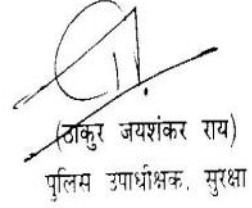 (ठाकुर जयशंकर राय)
पुलिस उपाधीक्षक, सुरक्षा